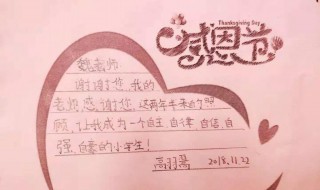 Thanksgiving Day
感恩节
魏老师：
谢谢您，我的
老师，感谢您，这两年来的照
顾，让我成为一个自主、自律、自信、自
强、自尊的小学生！
2018.11.22